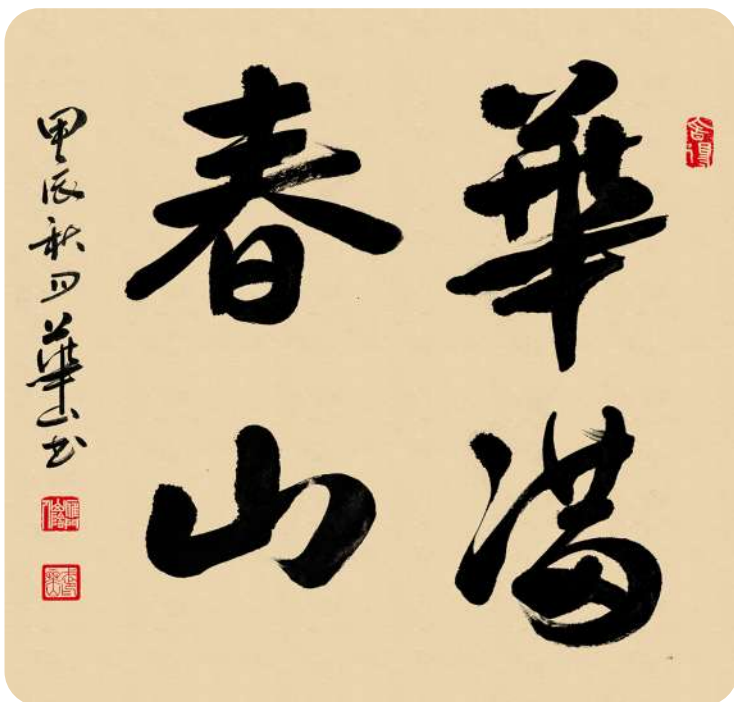 華滿
春山
甲辰秋月華山书